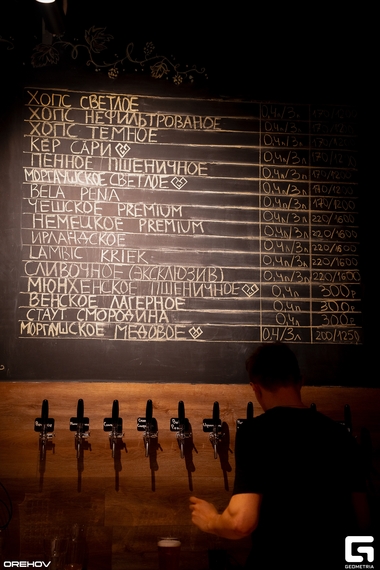 ХОПС СВЕТЛОЕ 0,4л/3л
ХОПС НЕФИЛЬТРОВАНОЕ 0,4л/3л
ХОПС ТЕМНОЕ 0,4л/3л
КЕР САРИ 0,4л/3л
ПЕННОЕ ПШЕНИЧНОЕ 0,4л/3л
МОРГАУШСКОЕ СВЕТЛОЕ 0,4л/3л
BELA PENA 0,4л/3л
ЧЕШСКОЕ PREMIUM 0,4л/3л 220/1600
НЕМЕЦКОЕ PREMIUM 0,4л/3л 220/1600
ИРЛАНДСКОЕ 0,4л/3л 220/1600
LAMBIC KRIEK 0,4л/3л 220/1600
СЛИВОЧНОЕ (ЭКСКЛЮЗИВ) 0,4л/3л 220/1600
МЮНХЕНСКОЕ ПШЕНИЧНОЕ 0,4л 300р
ВЕНСКОЕ ЛАГЕРНОЕ 0,4л 300р
СТАУТ СМОРОДИНА 0,4л 300р
МОРГАУШСКОЕ МЕДОВОЕ 0,4/3л 200/1250
OREHOV
GEOMETRIA